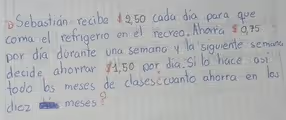 Sebastián recibe $2,50 cada día para que
coma el refrigerio en el recreo. Ahorra $0,75
por día durante una semana y la siguiente semana
decide ahorrar $1,50 por día. Si lo hace así
todo los meses de clases ¿cuanto ahorra en los
diez meses?